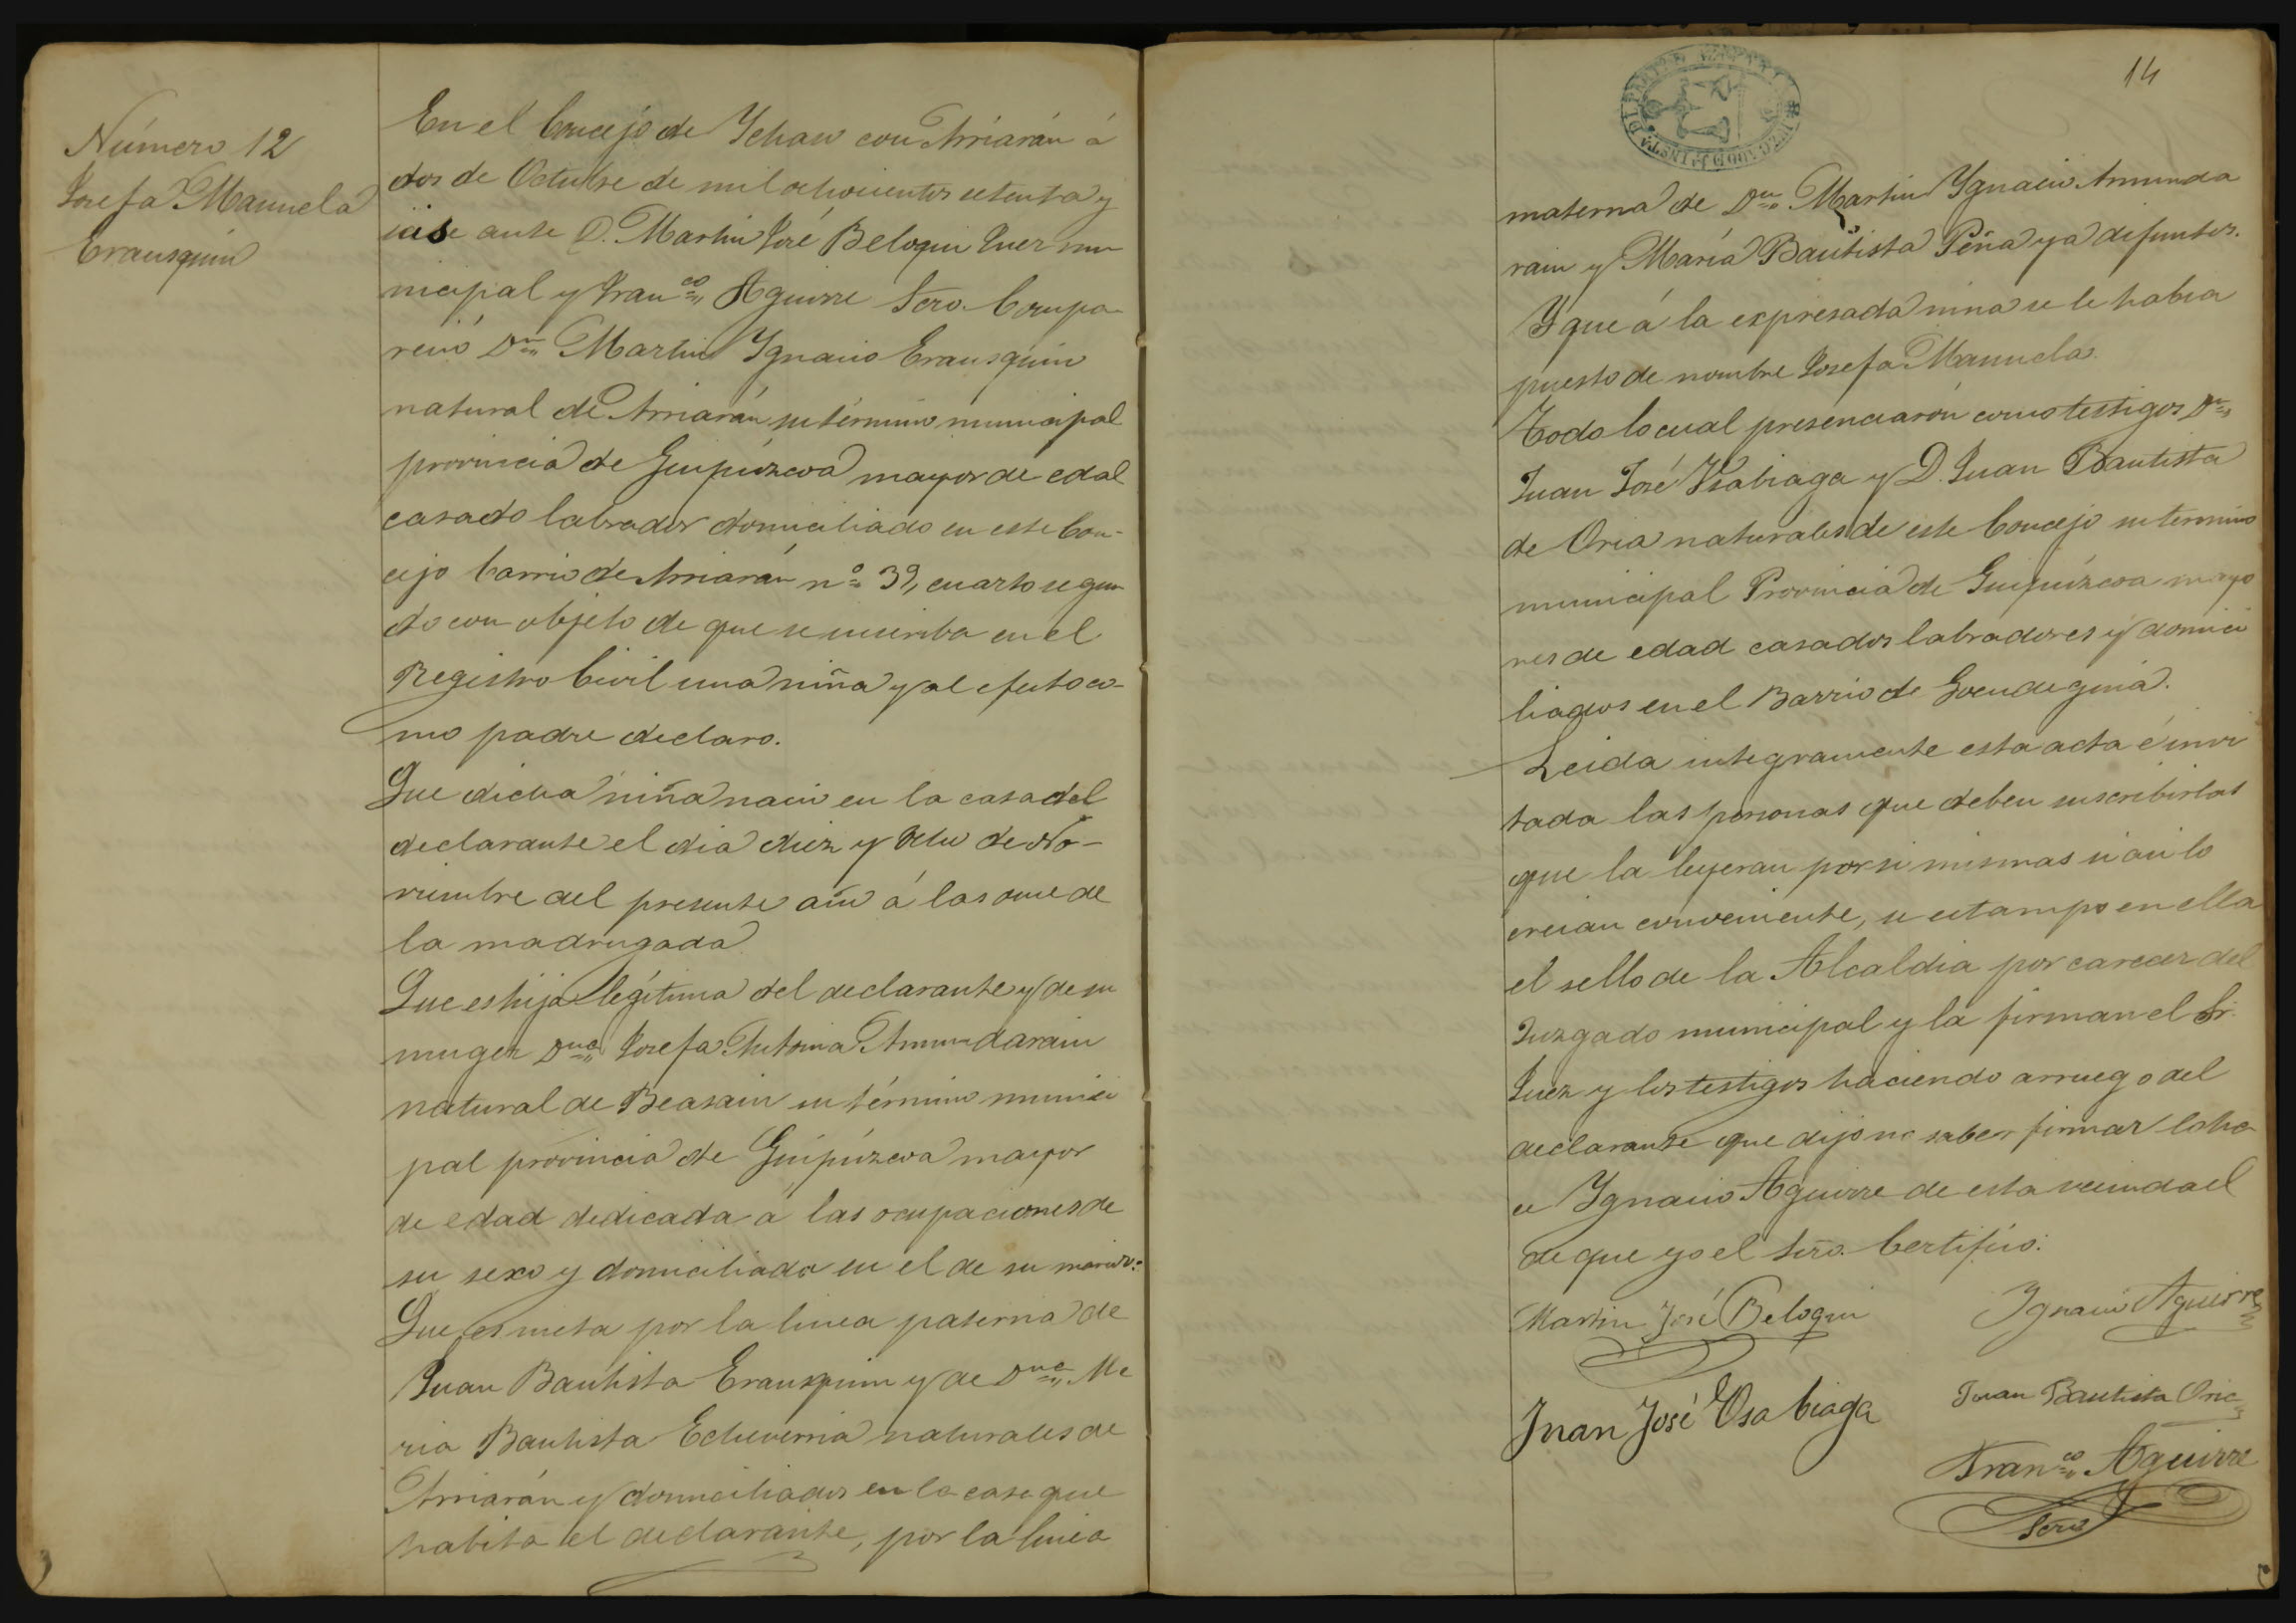 Número 12
Josefa Manuela
Erausquin
En el Concejo de Ychaso con Arriarán á
dos de Octubre de mil ochocientos setenta y
ante D. Martin José Beloqui Juez mu
nicipal y Fran.co Aguirre Scro. Compa
reció Dn Martin Ygnacio Erausquin
natural de Arriarán su término municipal
provincia de Guipúzcoa mayor de edad
casado labrador domiciliado en este Con-
cejo barrio de Arriarán nº 39, cuarto segun
do con objeto de que se inscriba en el
Registro Civil una niña y al efecto co-
mo padre declaro.
Que dicha niña nacio en la casa del
declarante el dia diez y Ocho de No-
viembre del presente año á las once de
la madrugada
Que es hija legítima del declarante y de su
muger Dna Josefa Antonia Amundarain
natural de Beasain su término munici
pal provincia de Guipúzcoa mayor
de edad dedicada a las ocupaciones de
su sexo y domiciliada en el de su marido.
Que es nieta por la linea paterna de
Juan Bautista Erausquin y de Dna Ma
ria Bautista Echeverria naturales de
Arriarán y domiciliados en la casa que
habita el declarante, por la linea
14
materna de Dn Martin Ygnacio Amunda
rain y María Bautista Peña ya difuntos.
Y que á la expresada nina se le habia
puesto de nombre Josefa Manuela.
Todo lo cual presenciarón como testigos Dn
Juan José Ysabiaga y D. Juan Bautista
de Oria naturales de este Concejo su termino
municipal Provincia de Guipúzcoa mayo
res de edad casados labradores y domici
liados en el Barrio de
Leida integramente esta acta é invi
tada las personas que deben suscribirlas
que la leyeran por si mismas si asi lo
creian conveniente, se estampo en ella
el sello de la Alcaldia por carecer del
Juzgado municipal y la firman el Sr.
Juez y los testigos haciendo arruego del
declarante que dijo no saber firmar lo ha
ce Ygnacio Aguirre de esta vecindad
de que yo el Scro. Certifico.
Martin José Beloqui
Ignacio Aguirre
Juan José Osabiaga
Juan Bautista Oria
Fran.co Aguirre
Scro